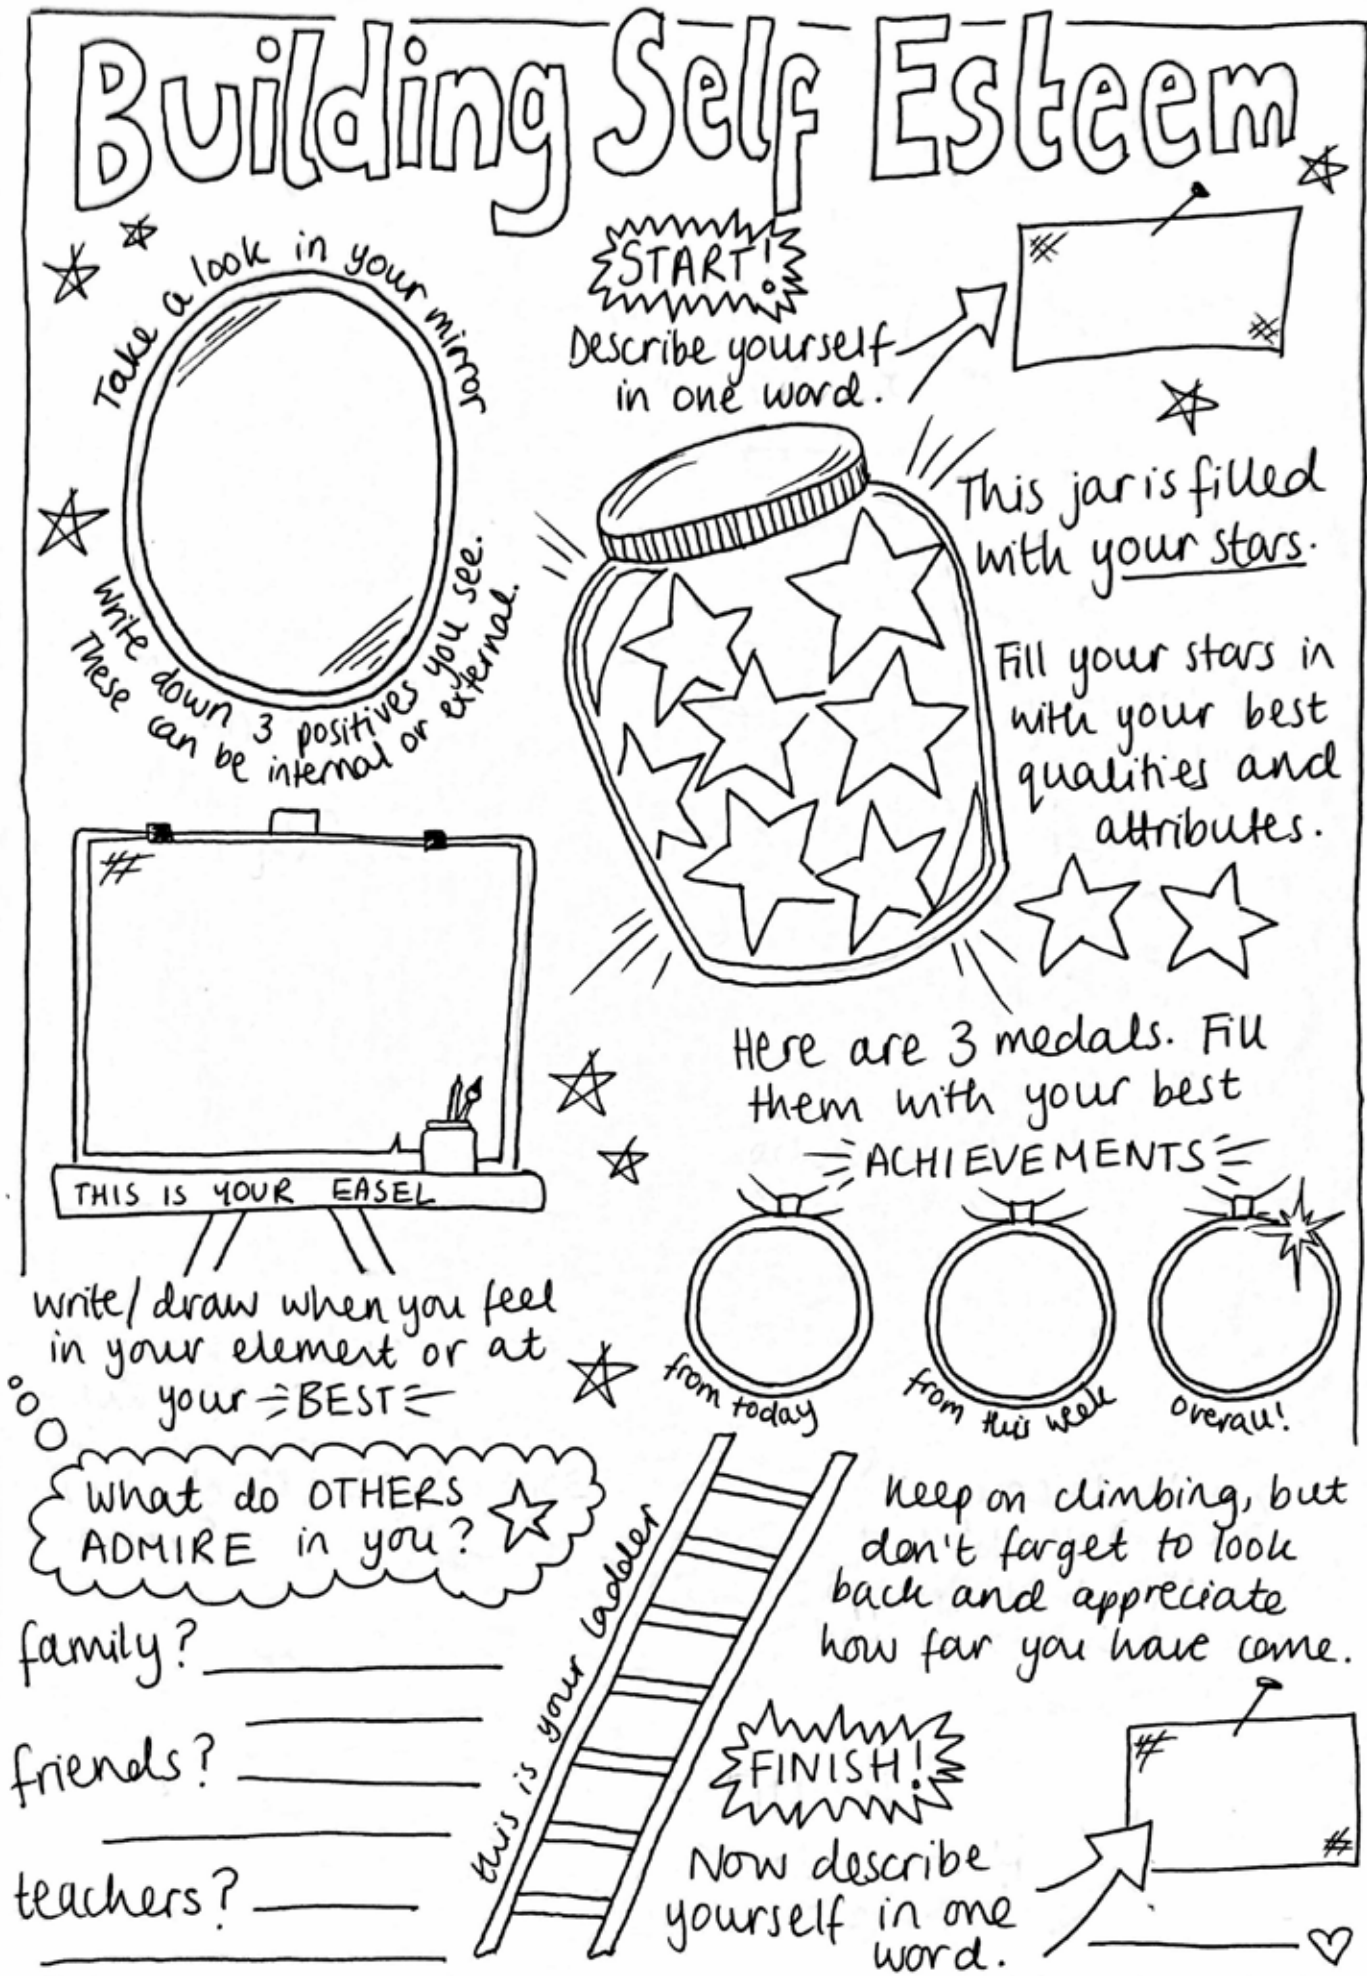 Building Self Esteem
START!
Describe yourself
in one word.
Take a look in your mirror
Write down 3 positives you see.
These can be internal or external.
This jar is filled
with your stars.
Fill your stars in
with your best
qualities and
attributes.
THIS IS YOUR EASEL
write/draw when you feel
in your element or at
your BEST
Here are 3 medals. Fill
them with your best
ACHIEVEMENTS
from today
from this week
overall!
What do OTHERS
ADMIRE in you?
family?
friends?
teachers?
this is your ladder
Keep on climbing, but
don't forget to look
back and appreciate
how far you have come.
FINISH!
Now describe
yourself in one
word.